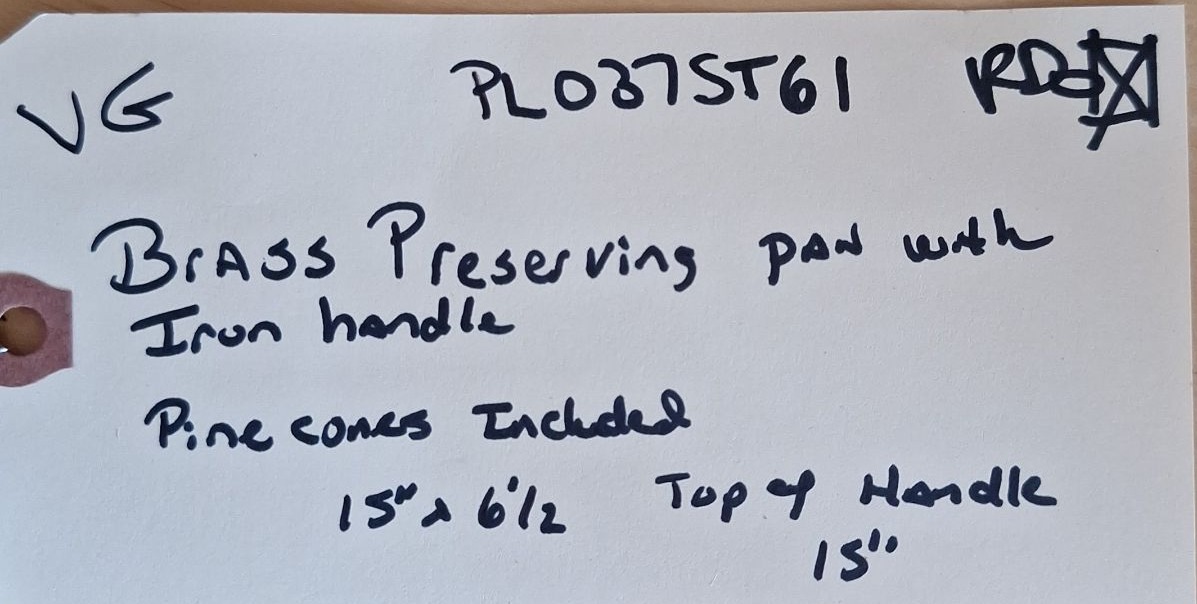 VG PL037ST61
Brass Preserving pan with
Iron handle
Pine cones Included
15" x 6 1/2 Top of Handle
15"